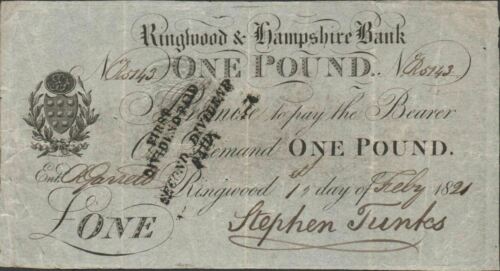 Ringwood & Hampshire Bank
ONE POUND.
I Promise to pay the Bearer
On Demand ONE POUND.
Ringwood 1st day of Feby 1821
£ONE
Stephen Tunks
FIRST
DIVIDEND PAID
SECOND DIVIDEND
PAID